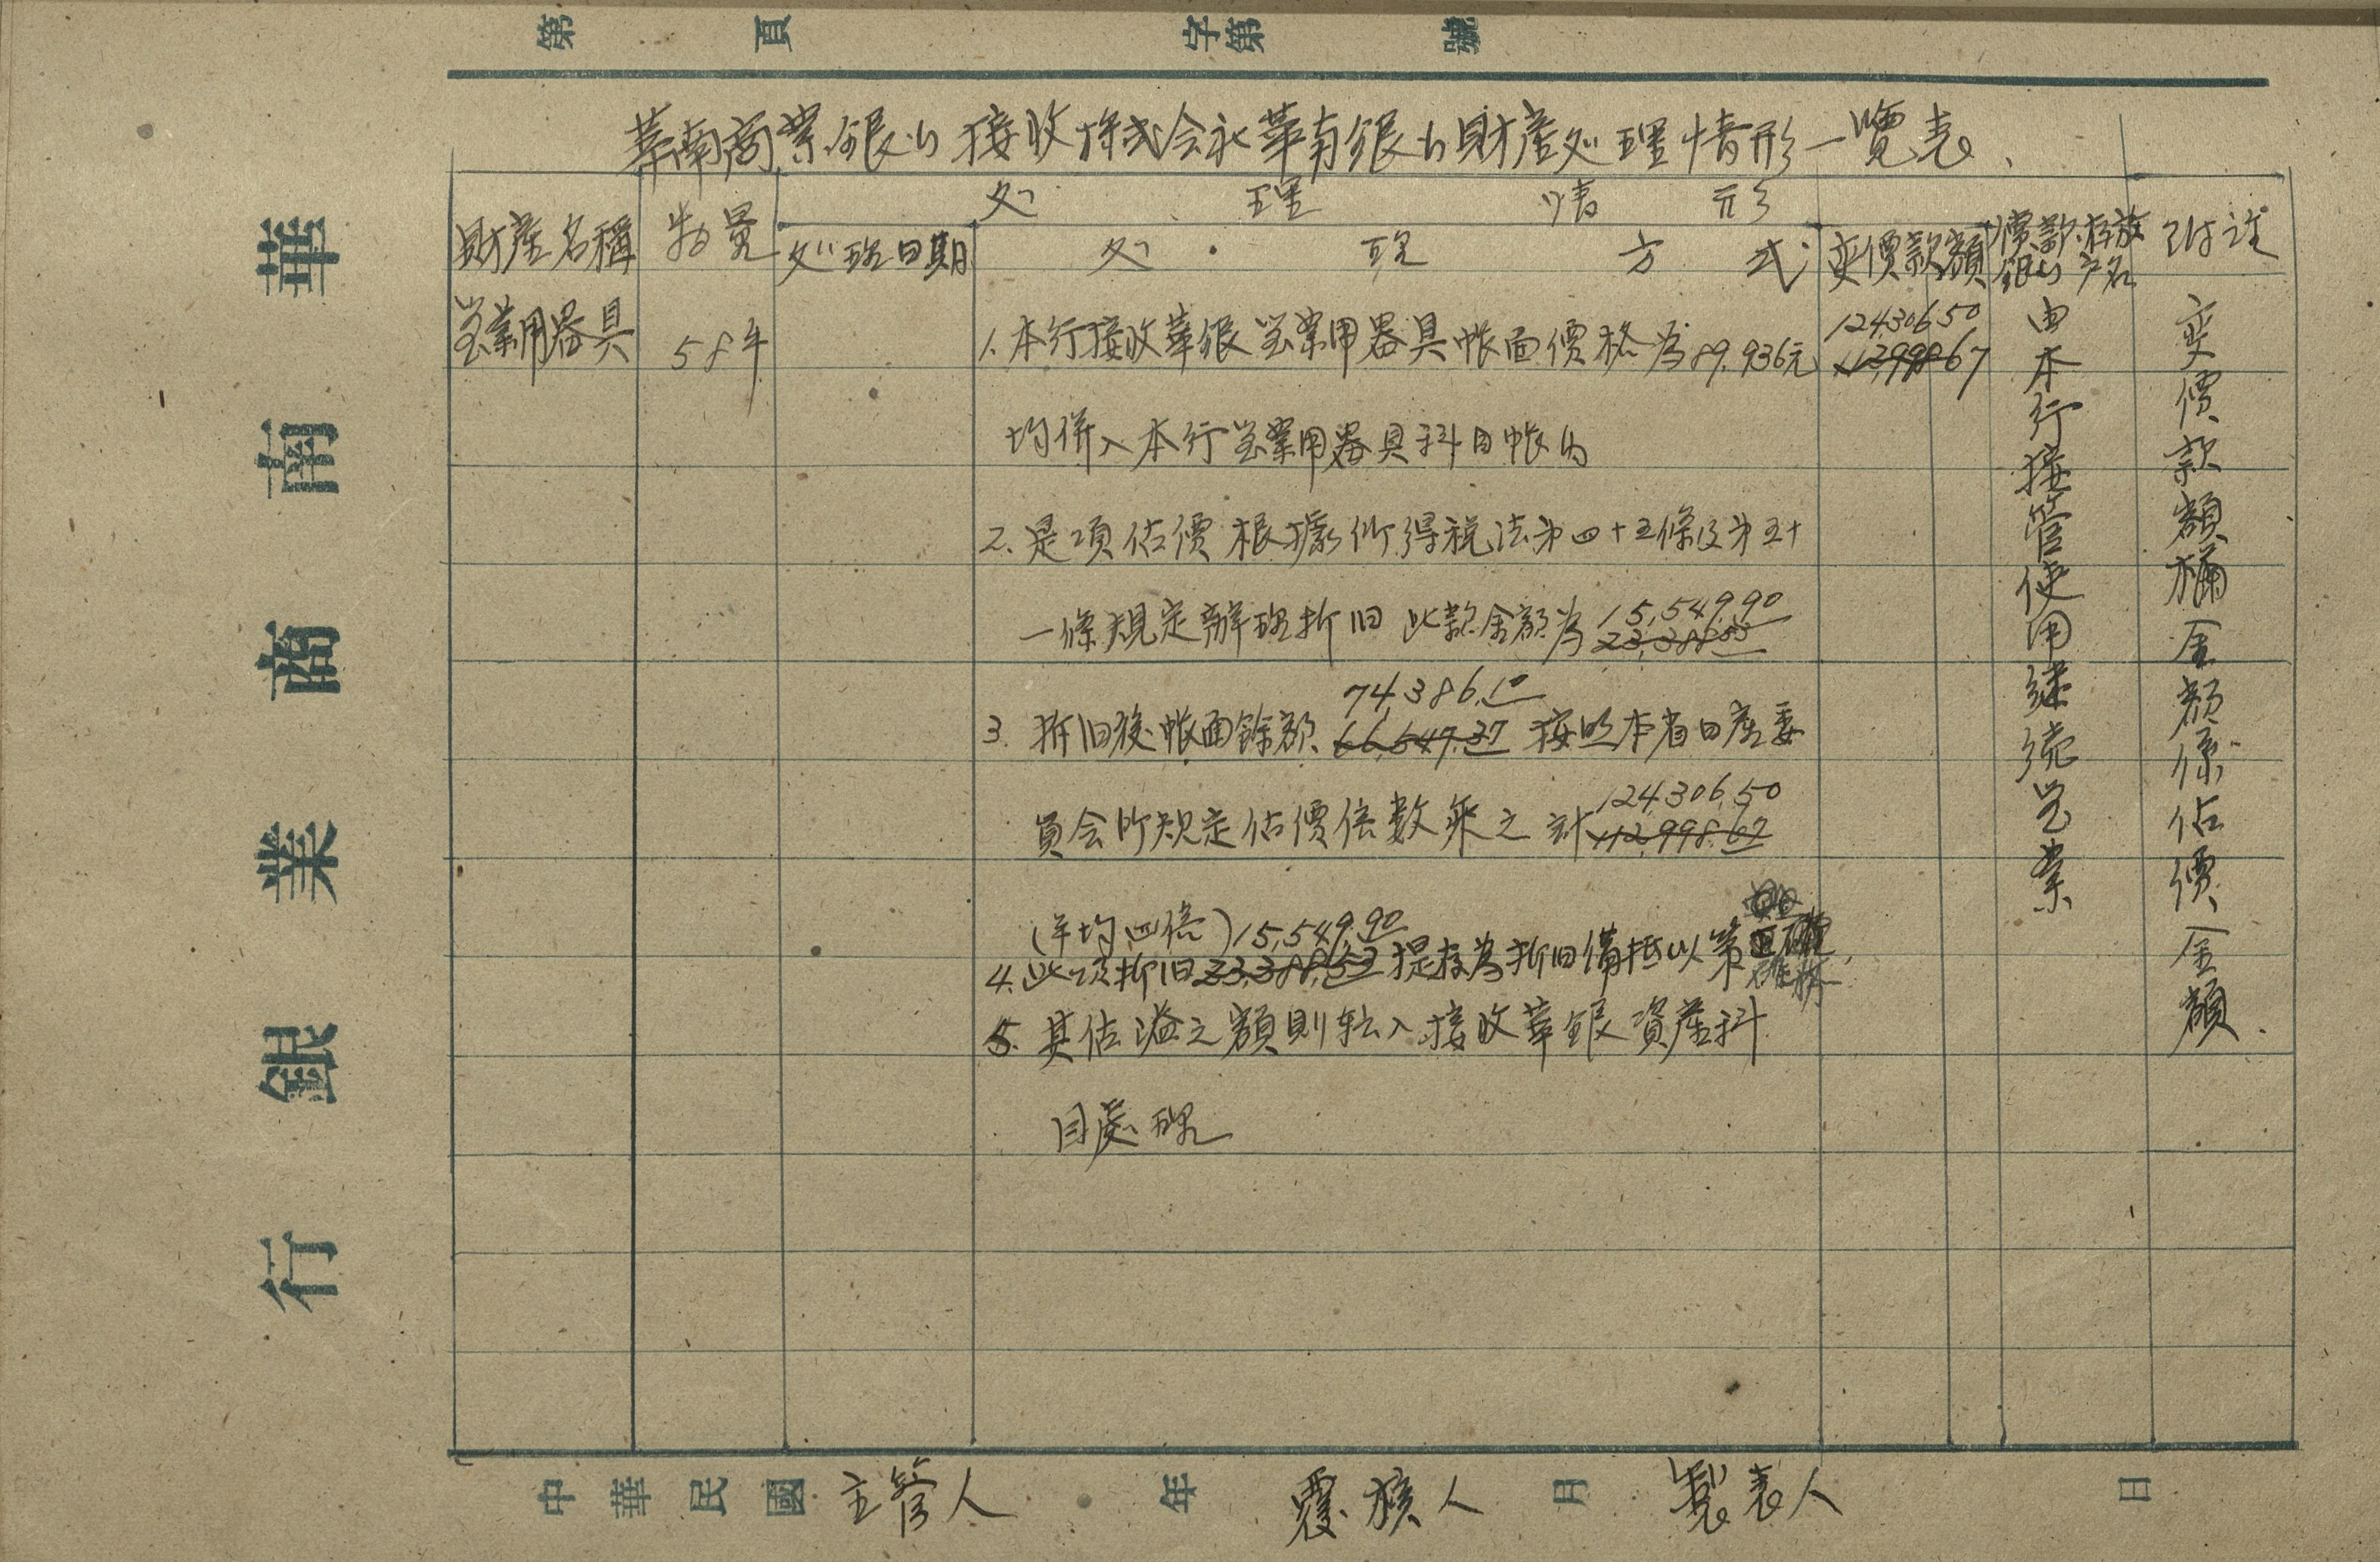 第 頁 字第 號
華南商業銀行接收株式会社華南銀行財產処理情形一覽表
財產名稱
数量
処理情形
処理日期
処理方式
変價款額
價款存放
銀行戶名
附註
営業用器具
58件
1. 本行接收華銀営業用器具帳面價格為89,936元
均併入本行営業用器具科目帳內
2. 是項估價根據所得稅法第四十五條及第五十
一條規定辦理折旧 此款金額為 15,549.90
23,388.53
74,386.10
3. 折旧後帳面餘額 66,547.37 按照本省日產委
員会所規定估價倍數乘之 計 124,306.50
112,998.67
(平均四倍) 15,549.90
4. 此項折旧 23,388.53 提存為折旧備抵以策正確
5. 其估溢之額則転入接收華銀資產科
目處理
124,306.50
112,998.67
由本行接管使用継続営業
変價款額欄金額係估價金額
中華民國 年 月 日
主管人 覆核人 製表人
華南商業銀行